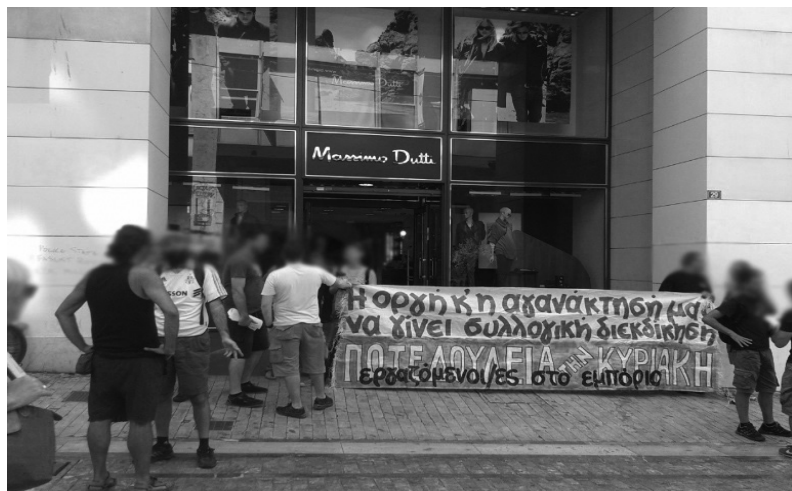 Massimo Dutti
Massimo Dutti
29
SSON
Η οργή κ' η αγανάκτησή μας
να γίνει συλλογική διεκδίκηση
ΠΟΤΕ ΔΟΥΛΕΙΑ ΤΗΝ ΚΥΡΙΑΚΗ
εργαζόμενοι/ες στο εμπόριο